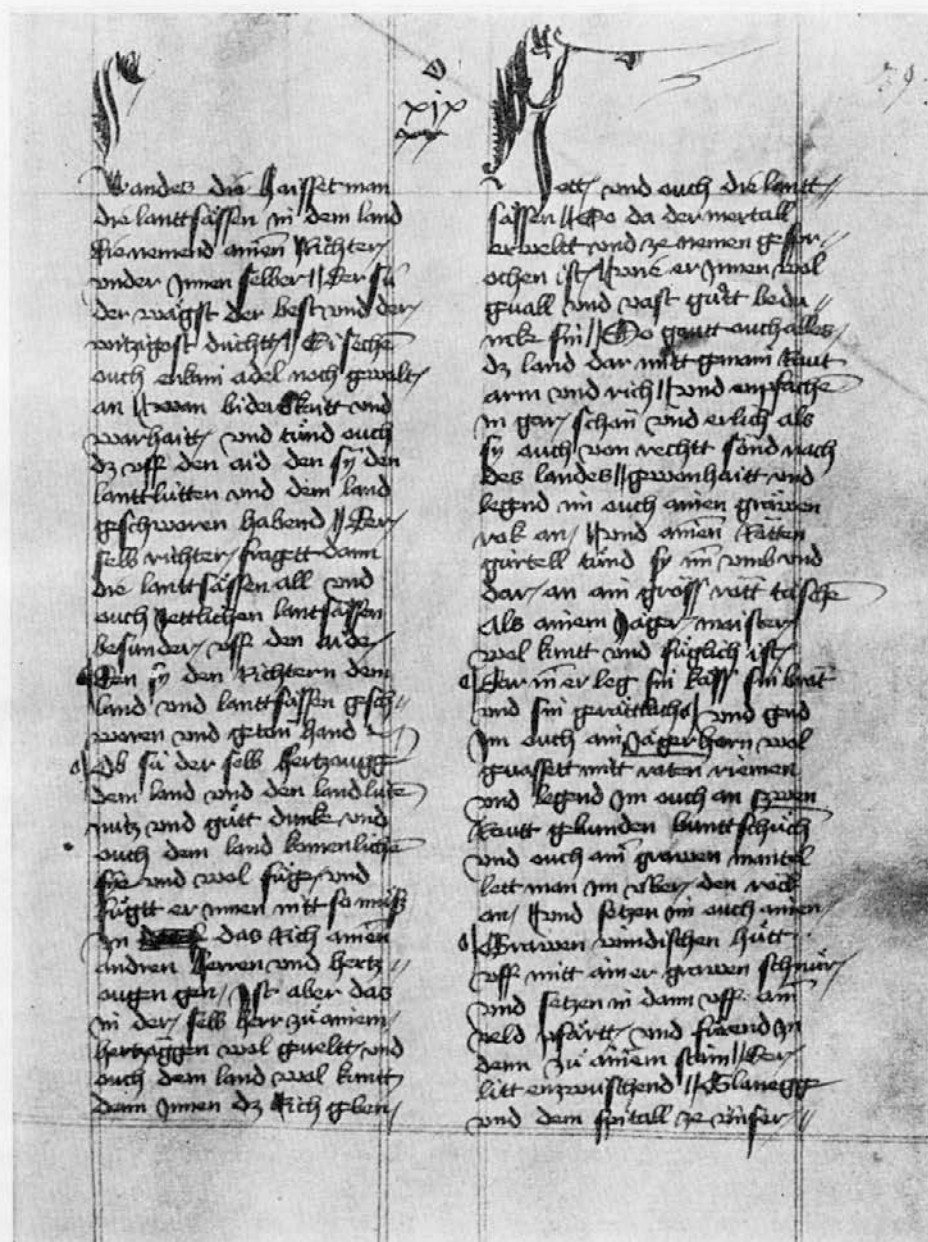 xix
39.
landes die haisset man
die lanttsässen in dem land
Die nemend ainen Richter
under Jnnen selber Der sü
der wägst der best und der
witzigost duchtt Er sechen
ouch enkain adel noch gewalt
an wan biderbkaitt und
warhaitt und tünd ouch
dz uff den aid den sÿ den
lanttlütten und dem land
geschworen habend Der
selb richter fragett dann
die lanttsässen all und
ouch Jettlichen lantsässen
besunder uff den aide
Den sÿ den Richtern dem
land und lanttsässen gesch
woren und geton hand
Ob sü der selb Hertzougg
dem land und den landlüte
nutz und gütt dunke und
ouch dem land komenliche
sÿe und wol füge und
fügtt er innen nitt so müss
In das Rich ainen
andren herren und hertz
ougen gen Jst aber das
in der selb herr zü ainem
hertzoggen wol gevelt und
ouch dem land wol kumt
dem Jnnen dz Rich geben
ott und ouch die lantt
sässen So da der mertall
erweltt und ze nemen gespr
ochen ist wie er Jnnen wol
gevall und vast gütt bedu
ncke sin So gautt ouch alles
dz land dar mitt gemain Raut
arm und rich und empfache
in gar schon und erlich als
sy ouch von rechtt sönd nach
des landes gewonhaitt und
legend im ouch ainen gräwen
rok an und ainen Rotten
gürtell tünd sy im umb und
dar an ain gross rott täsche
Als ainem Jäger maister
wol kumt und füglich ist
Dar in er leg sin käss sin brät
und sin gerättlichs und gend
Jm ouch ain Jägerhorn wol
gevassett mitt roten riemen
und legend Jm ouch an zwen
Rott gebunden buntt schüch
und ouch ain grawen mantel
lett man im über den rock
an und setzen im ouch ainen
Grawen windischen hütt
uff mitt ainer grawen schnür
und setzen in dann uff ain
veld pfärtt und fürend in
denn zü ainem stain Der
litt enzwüschend Glanegg
und dem spitall ze unser